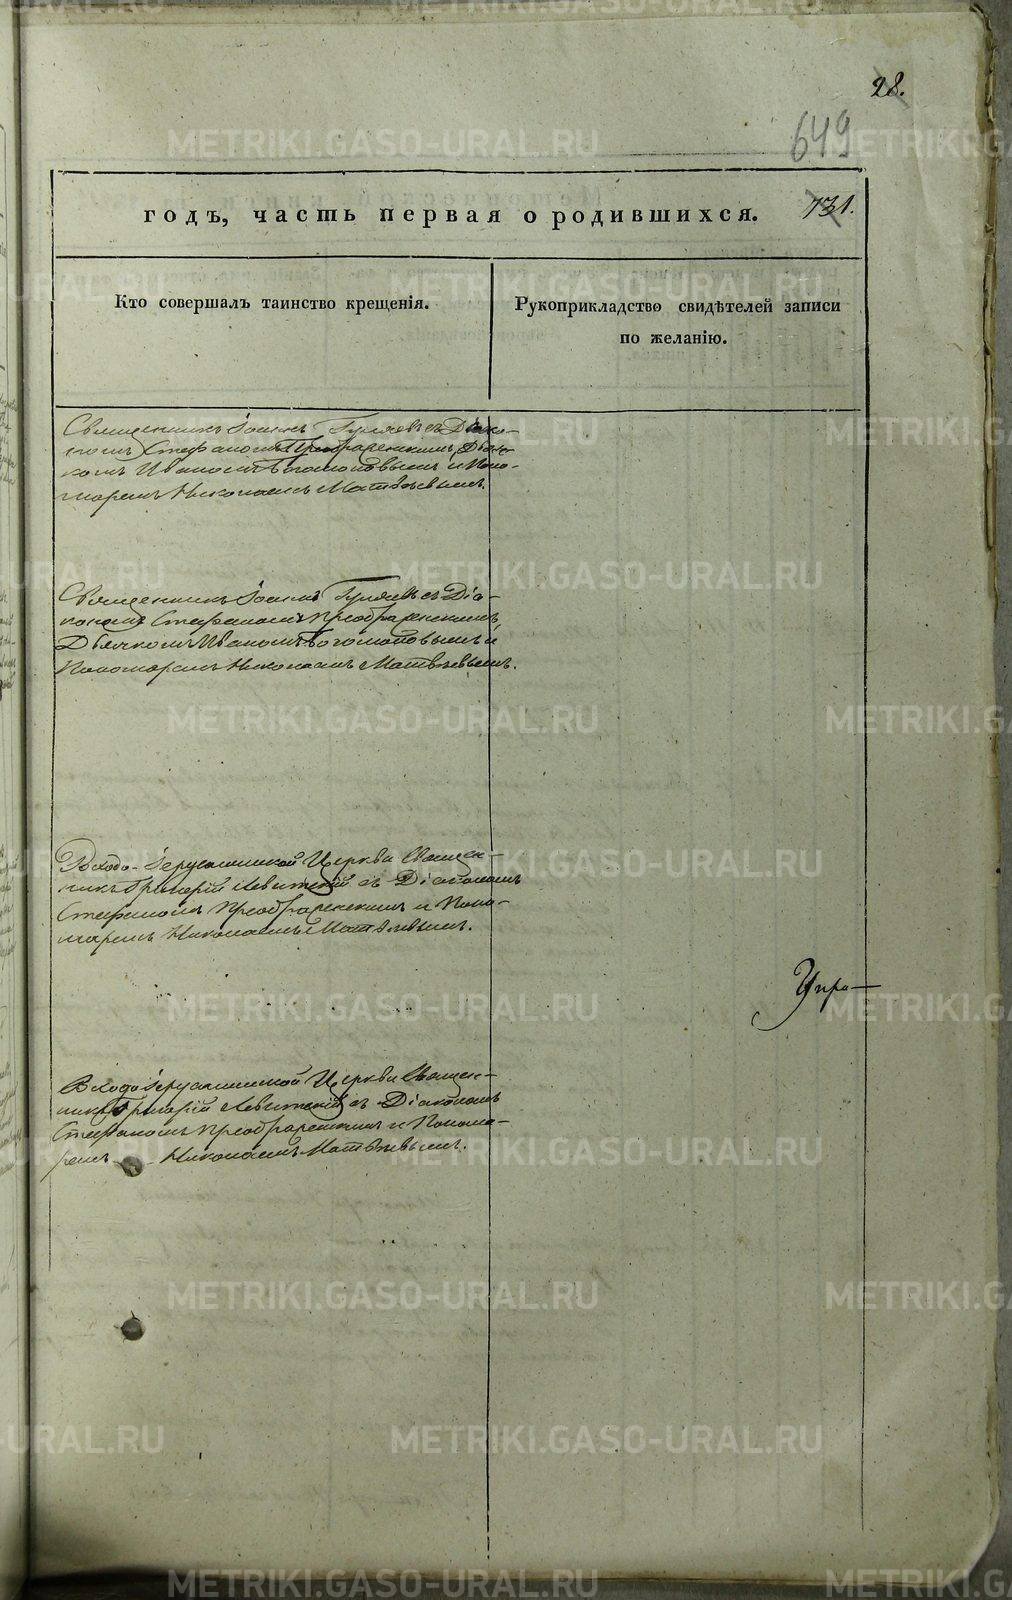 28.
649
731.
годъ, часть первая о родившихся.
Кто совершалъ таинство крещенія.
Рукоприкладство свидѣтелей записи
по желанію.
Священникъ Іоаннъ Гуляевъ съ Діако-
номъ Стефаномъ Преображенскимъ, Дьяч-
комъ Иваномъ Богомоловымъ и Поно-
маремъ Николаемъ Матвѣевымъ.
Священникъ Іоаннъ Гуляевъ съ Діа-
кономъ Стефаномъ Преображенскимъ,
Дьячкомъ Иваномъ Богомоловымъ и
Пономаремъ Николаемъ Матвѣевымъ.
Входо-Іерусалимской Церкви Священ-
никъ Григорій Левитскій съ Діакономъ
Стефаномъ Преображенскимъ и Поно-
маремъ Николаемъ Матвѣевымъ.
Упра-
Входоіерусалимской Церкви Священ-
никъ Григорій Левитскій съ Діакономъ
Стефаномъ Преображенскимъ и Понома-
ремъ Николаемъ Матвѣевымъ.
METRIKI.GASO-URAL.RU